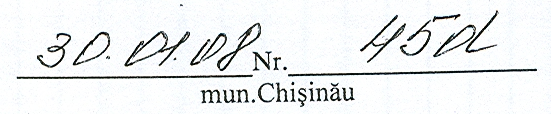 30.01.08 Nr. 45d
mun.Chişinău